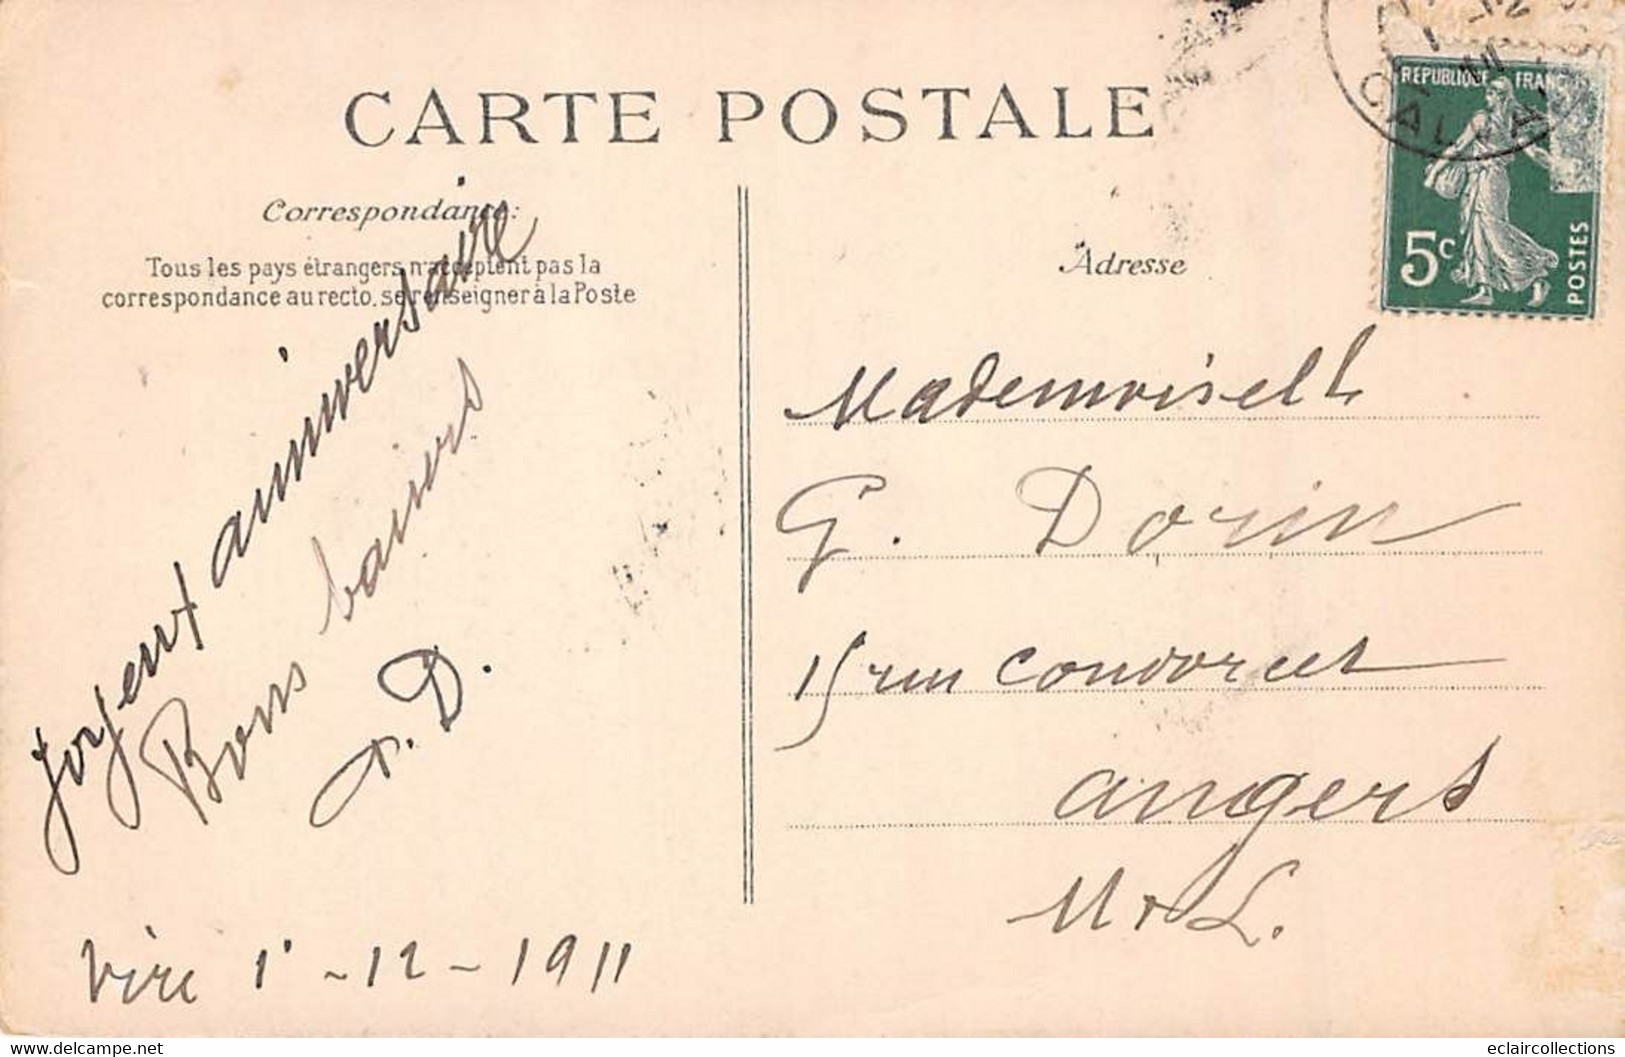 CARTE POSTALE
Correspondance:
Tous les pays étrangers n'acceptent pas la
correspondance au recto, se renseigner à la Poste
Joyeux anniversaire
Bons baisers
D.
Vire 1r - 12 - 1911
Adresse
RÉPUBLIQUE FRANÇAISE
5c
POSTES
CALVA
Mademoiselle
G. Dorin
15 rue Condorcet
Angers
M & L.
delcampe.net
eclaircollections